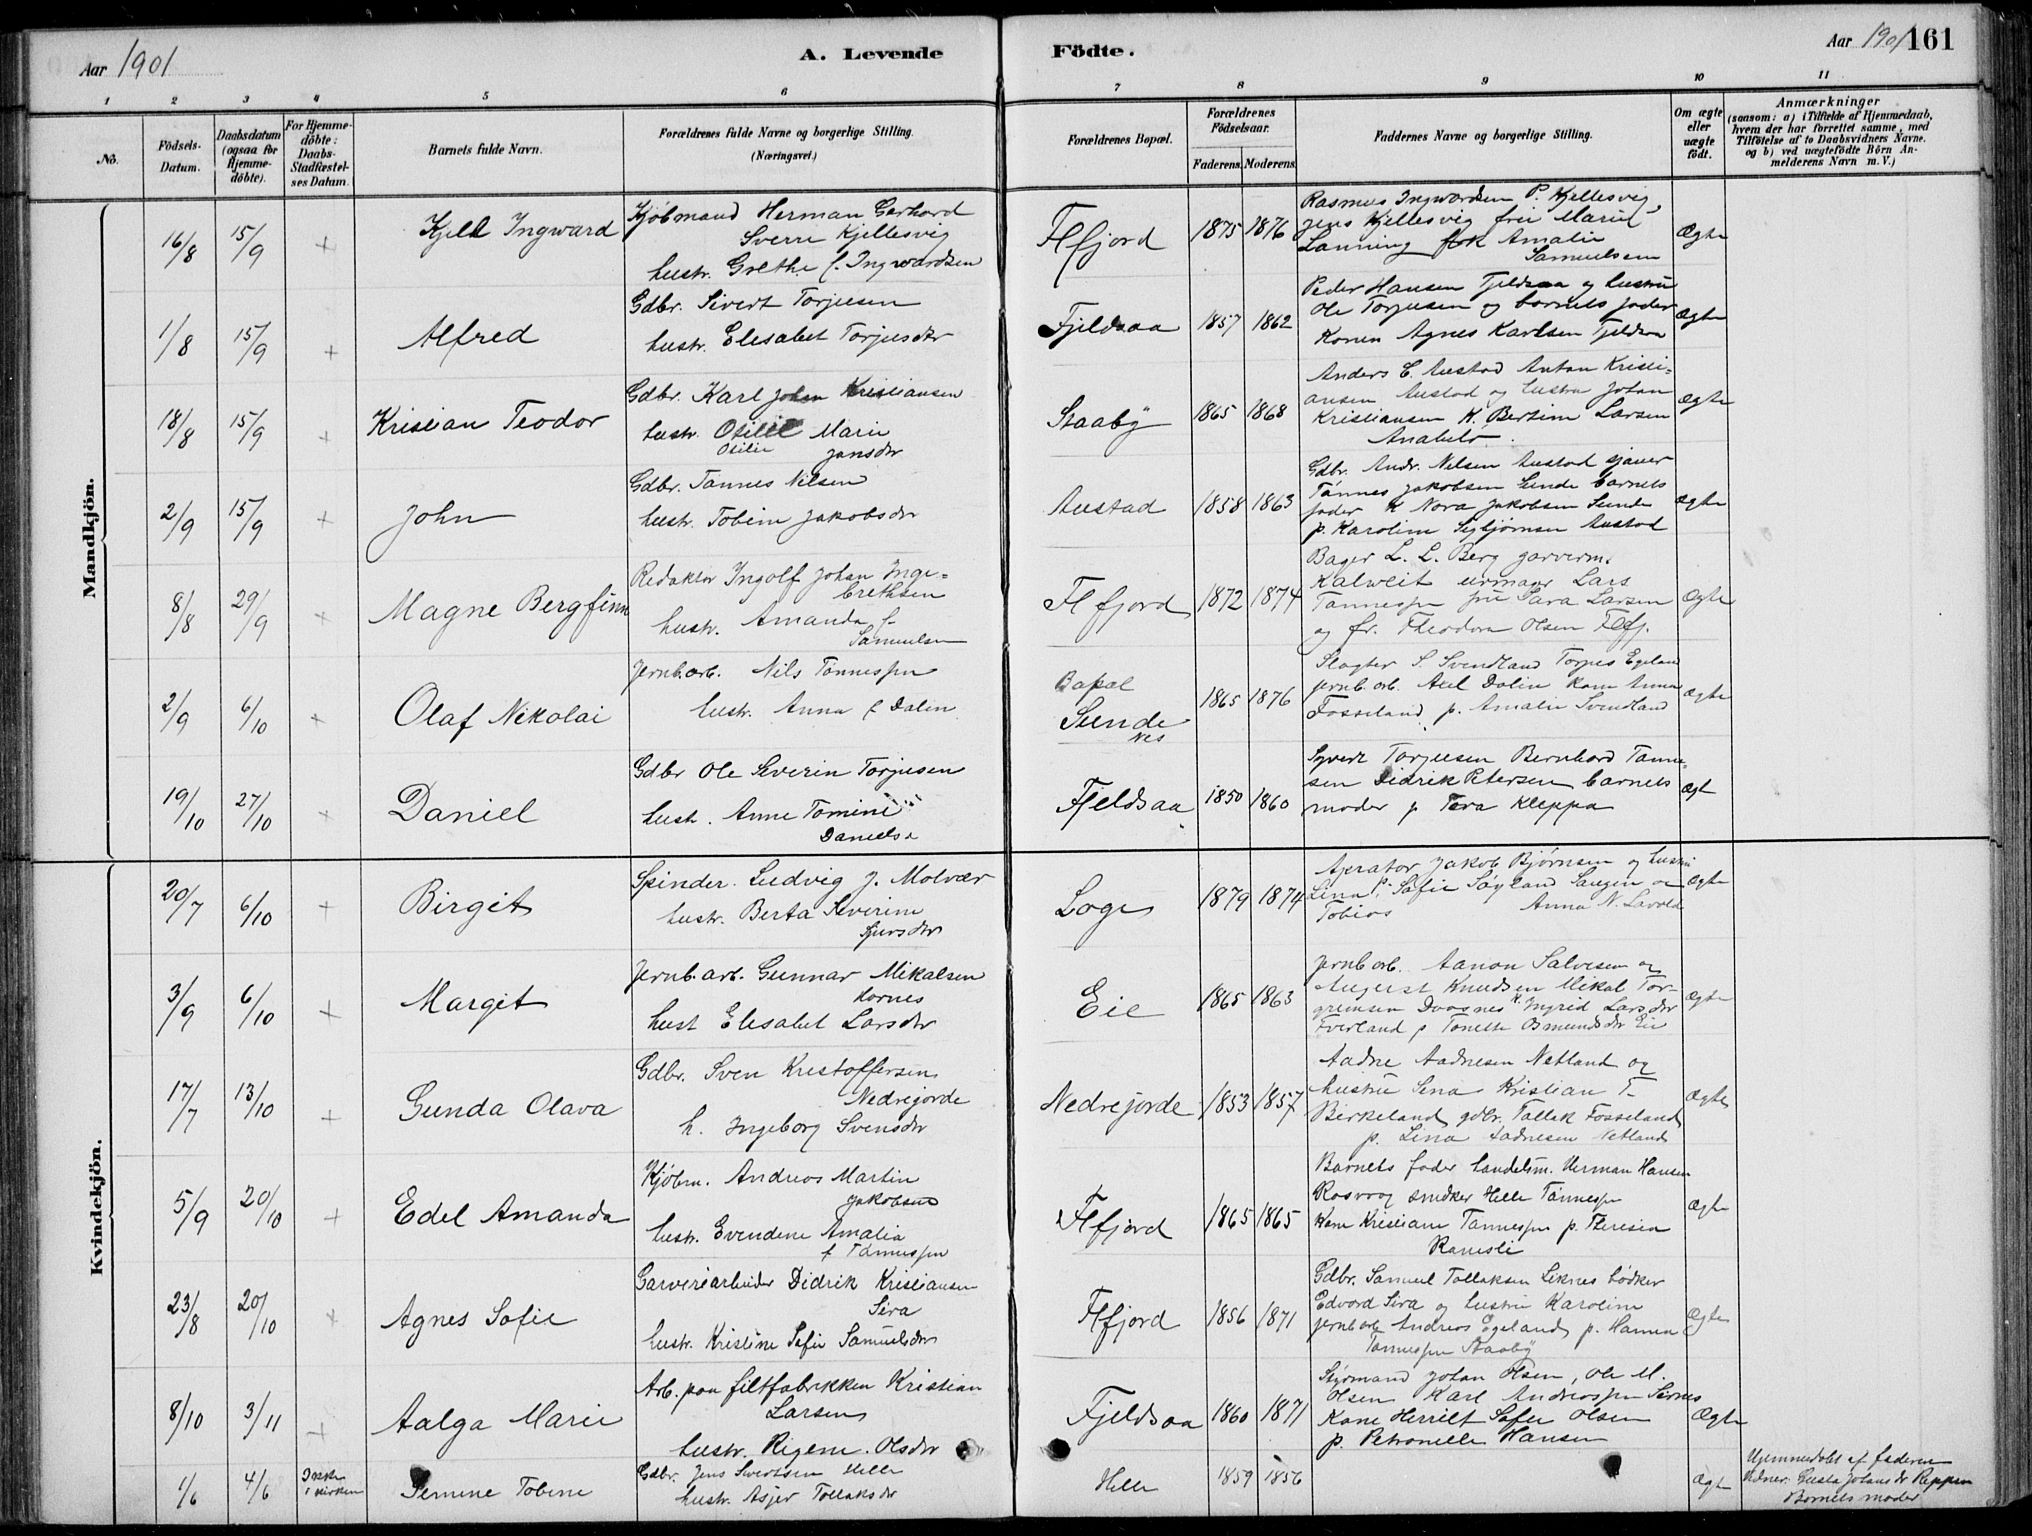 Aar 1901
A. Levende
Födte.
Aar 1901
161
1 2 3 4 5 6 7 8 9 10 11
No.
Födsels-Datum.
Daabsdatum (ogsaa for Hjemme-döbte).
For Hjemme-döbte: Daabs-Stadfæstel-ses Datum.
Barnets fulde Navn.
Forældrenes fulde Navne og borgerlige Stilling. (Næringsvei.)
Forældrenes Bopæl.
Forældrenes Födselsaar.
Faderens. Moderens.
Faddernes Navne og borgerlige Stilling.
Om ægte eller uægte födt.
Anmærkninger
(saasom: a) i Tilfælde af Hjemmedaab,
hvem der har forrettet samme, med
Tilföielse af to Daabsvidners Navne.
og b) ved uægtefödte Börn An-
melderens Navn m. V.)
Mandkjön.
16/8 15/9 + Kjell Ingward
Kjøbmand Herman Gerhard
Sverre Kjellesvig
hustr. Grethe f. Ingwardsen
Flfjord 1875 1876
Rasmus Ingwardsen P. Kjellesvig,
Jens Kjellesvig frü Marie
Lanning frk Amalie
Samuelsen
Ægte
1/8 15/9 + Alfred
Gdbr. Sivert Torjusen
hustr. Elisabet Torjusdtr
Fjeldsaa 1857 1862
Peder Hansen Fjeldsaa og hustru
Ole Torjusen og barnets fader
Konen Agnes Karlsen Fjeldsaa
Ægte
18/8 15/9 + Kristian Teodor
Gdbr. Karl Johan Kristiansen
hustr. Otilie Marie
Otilie Jansdtr
Staaby 1865 1868
Anders E. Austad Anton Kristi-
ansen Austad og hustru Johan
Kristiansen K. Bertine Larsen
Anabelø.
Ægte
2/9 15/9 + John
Gdbr. Tønnes Nilsen
hustr. Tobine Jakobsdtr
Austad 1858 1863
Gdbr. Andr. Nilsen Austad sjauer
Tønnes Jakobsen Sunde barnets
fader K Nora Jakobsen Sunde
p. Karoline Sigbjørnsen Austad
Ægte
8/8 29/9 + Magne Bergfinn
Redaktør Ingolf Johan Inge-
brethsen
hustr. Amanda f.
Samuelsen
Flfjord 1872 1874
Bager L. L. Berg garverm.
Kalweit urmager Lars
Tønnessen frü Sara Larsen
og fr. Theodora Olsen Flfj.
Ægte
2/9 6/10 + Olaf Nikolai
Jernb.arb. Nils Tønnessen
hustr. Anna f Dalin
Bopæl
Sunde
Nes
1865 1876
Slagter S. Svendland Torjus Egeland
jernb. arb. Axel Dalin kone Anna
Fosseland p. Amalie Svendland
Ægte
19/10 27/10 + Daniel
Gdbr Ole Severin Torjusen
hustr. Anne Tomine
Danielsd
Fjeldsaa 1850 1860
Syvert Torjusen Bernhard Tønne-
sen Didrik Petersen barnets
moder p Tora Kleppa
Ægt
Kvindekjön.
20/7 6/10 + Birgit
Spinder. Ludvig J. Molvær
hustr. Berta Severine
Sjursdtr
Loge 1879 1874
Apratør Jakob Bjørnsen og hustru
Lina p. Sofie Søyland Saugen og
Tobias Anna N. Lavold
Ægte
3/9 6/10 + Margit
Jernb. arb. Gunnar Mikalsen
Hornes
hust Elisabet Larsdtr
Eie 1865 1863
Jernb arb. Aanon Salvesen og
August Knudsen Mikal Tor-
grimsen Ingrid Larsdtr
p Tonette Osmundsdtr Eie
Ægte
17/7 13/10 + Gunda Olava
Gdbr. Sven Kristoffersen
Nedrejorde
h. Ingeborg Svensdtr
Nedrejorde 1853 1857
Aadne Aadnesen Netland og
hustru Sena Kristian T.
Birkeland gdbr. Tallak Fosseland
p. Lina Aadnesen Netland
Ægte
5/9 20/10 + Edel Amanda
Kjøbm. Andreas Martin
Jakobsen
hustr. Evendine Amalia
f Tønnessen
Flfjord 1865 1865
Barnets fader handelsm. Herman Hansen
Rasvaag snedker Helle Tønnessen
Kone Kristiane Tønnessen p. Theresia
Ramsli
Ægte
23/8 20/10 + Agnes Sofie
Garveriarbeider Didrik Kristiansen
Sira
hustr. Kristine Sofie Samuelsdtr
Flfjord 1856 1871
Gdbr. Samuel Tollaksen Liknes bødker
Edvard Sira og hustru Karoline
jernb arb Andreas Egeland p. Hanna
Tønnessen Staaby
Ægte
8/10 3/11 + Aalga Marie
Arb. paa filtfabrikken Kristian
Larsen
hustr. Rigene Olsdtr
Fjeldsaa 1860 1871
Styrmand Johan Olsen, Ole M.
Olsen Karl Andreassen Sernes
Kone Herriet Sofie Olsen
p. Petronelle Hansen
Ægte
1/6 4/6 Ikke i kirken
Semine Tobine
Gdbr. Jens Sivertsen Helle
hustr. Asjer Tollaksdtr
Helle 1859 1856
Ægte
Hjemmedøbt af faderen
Vidner: Gusta Johansdtr Reppen
Barnets moder